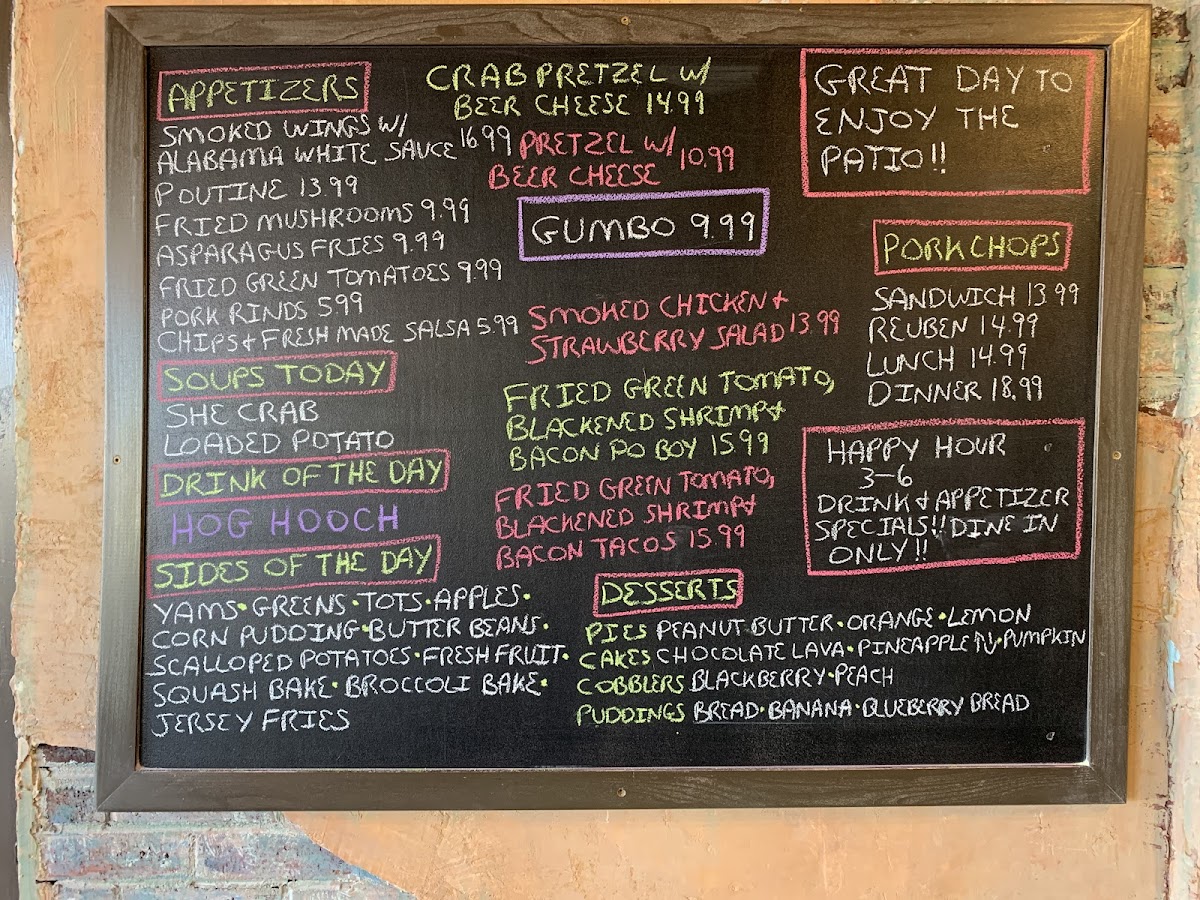 APPETIZERS
SMOKED WINGS W/
ALABAMA WHITE SAUCE 16.99
POUTINE 13.99
FRIED MUSHROOMS 9.99
ASPARAGUS FRIES 9.99
FRIED GREEN TOMATOES 9.99
PORK RINDS 5.99
CHIPS & FRESH MADE SALSA 5.99
SOUPS TODAY
SHE CRAB
LOADED POTATO
DRINK OF THE DAY
HOG HOOCH
SIDES OF THE DAY
YAMS • GREENS • TOTS • APPLES •
CORN PUDDING • BUTTER BEANS •
SCALLOPED POTATOES • FRESH FRUIT •
SQUASH BAKE • BROCCOLI BAKE •
JERSEY FRIES
CRAB PRETZEL W/
BEER CHEESE 14.99
PRETZEL W/ 10.99
BEER CHEESE
GUMBO 9.99
SMOKED CHICKEN &
STRAWBERRY SALAD 13.99
FRIED GREEN TOMATO,
BLACKENED SHRIMP &
BACON PO BOY 15.99
FRIED GREEN TOMATO,
BLACKENED SHRIMP &
BACON TACOS 15.99
GREAT DAY TO
ENJOY THE
PATIO!!
PORKCHOPS
SANDWICH 13.99
REUBEN 14.99
LUNCH 14.99
DINNER 18.99
HAPPY HOUR
3-6
DRINK & APPETIZER
SPECIALS!! DINE IN
ONLY!!
DESSERTS
PIES PEANUT BUTTER • ORANGE • LEMON
CAKES CHOCOLATE LAVA • PINEAPPLE ↑↓ • PUMPKIN
COBBLERS BLACKBERRY • PEACH
PUDDINGS BREAD • BANANA • BLUEBERRY BREAD